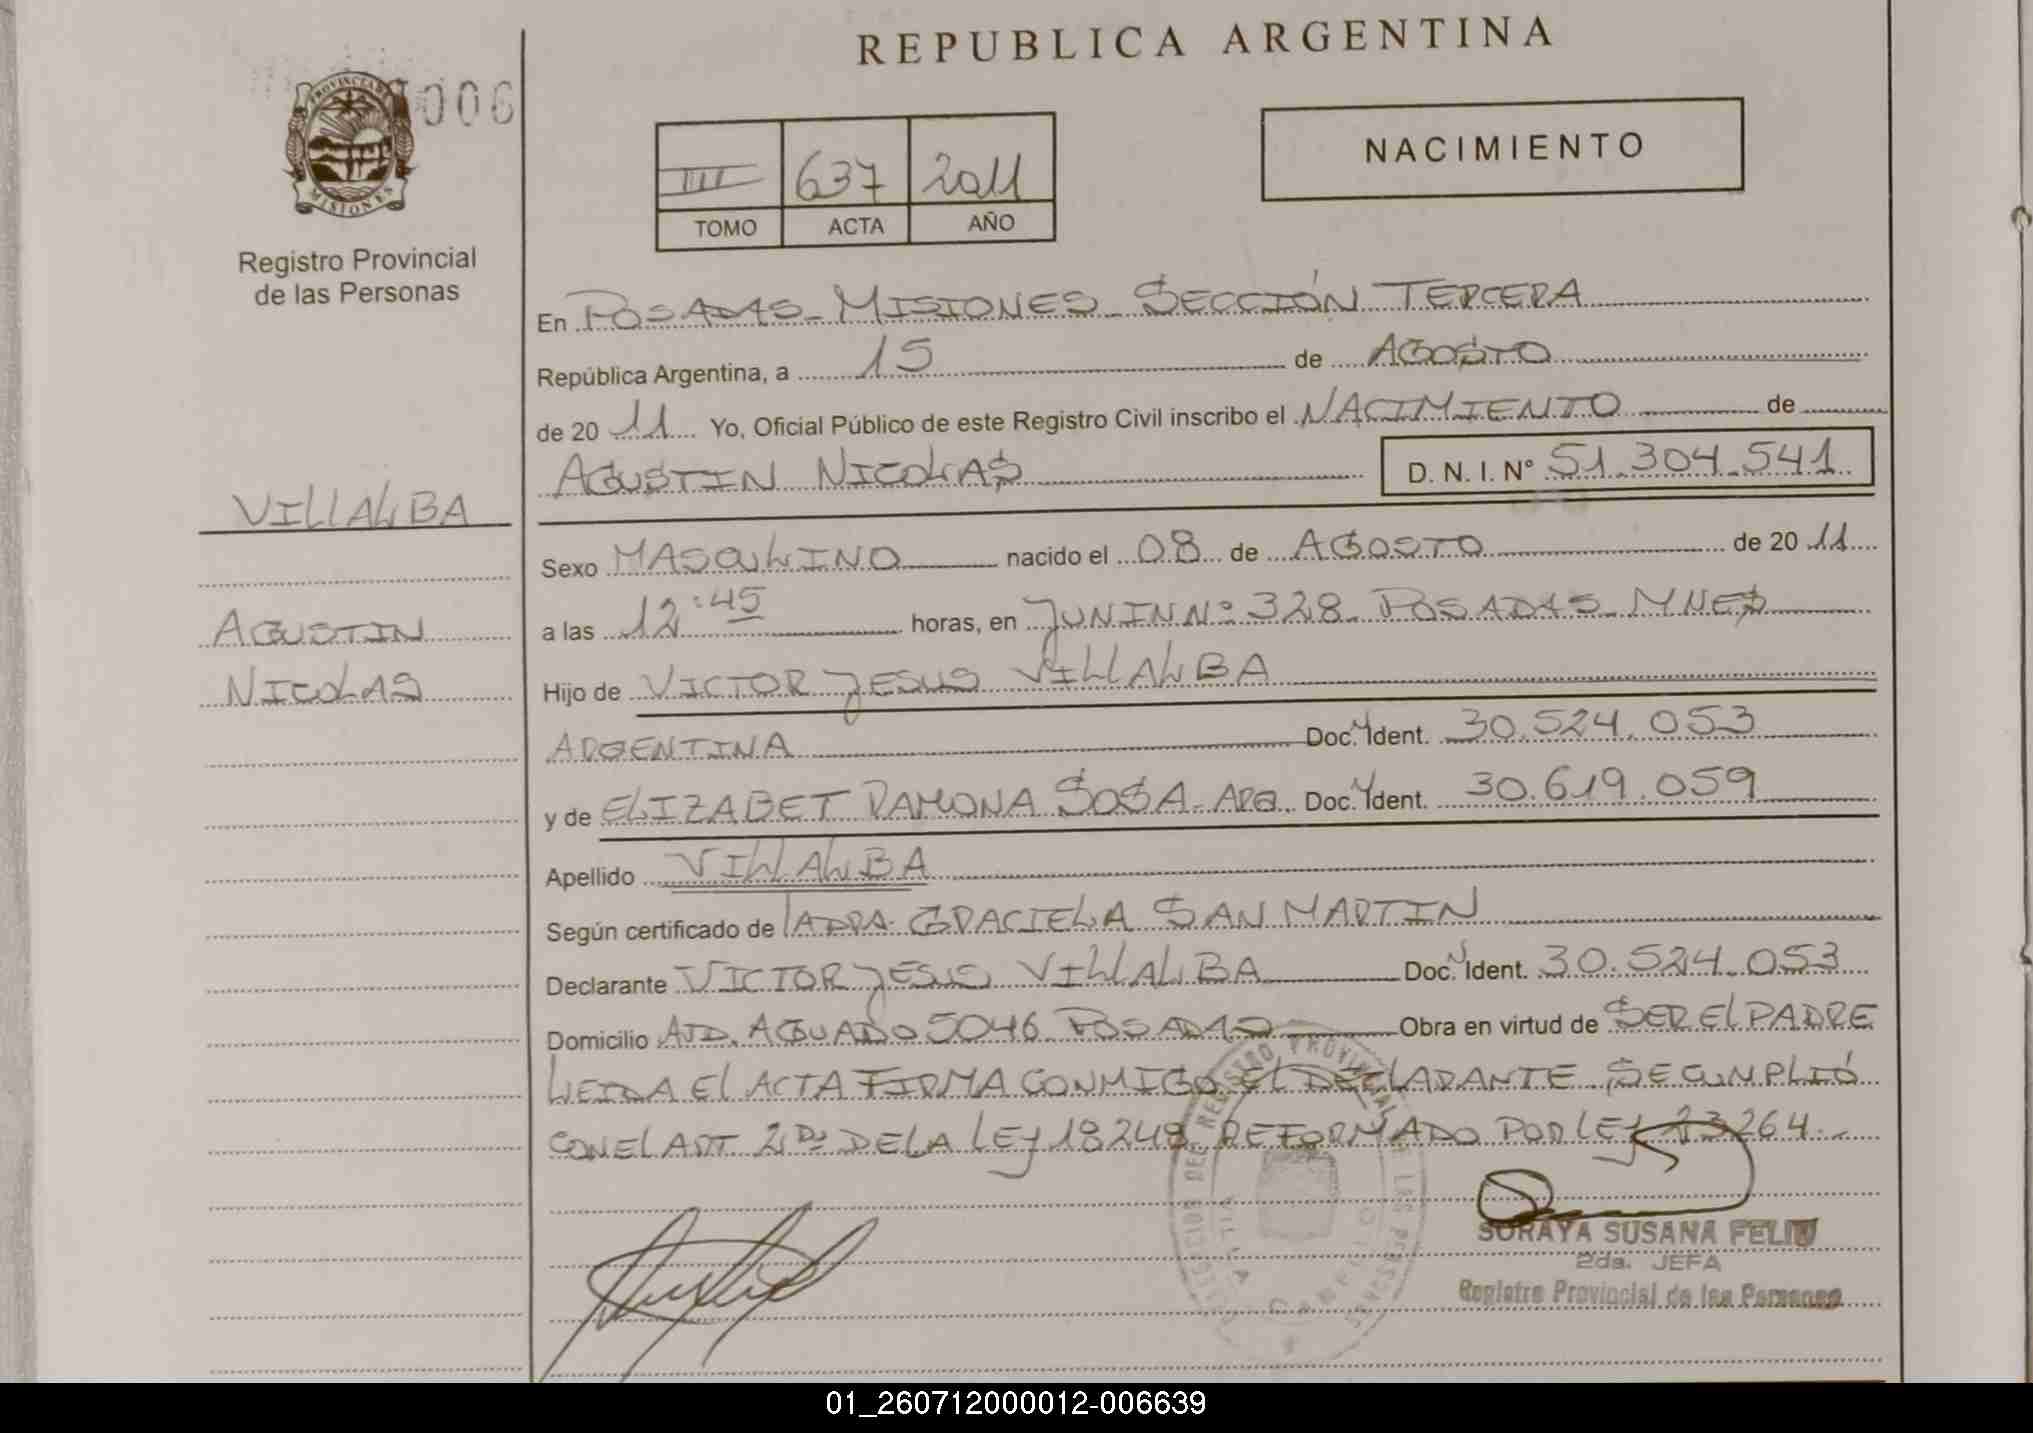 REPUBLICA ARGENTINA
PROVINCIA DE MISIONES
006
Registro Provincial
de las Personas
III 637 2011
TOMO ACTA AÑO
NACIMIENTO
En POSADAS - MISIONES - SECCIÓN TERCERA
República Argentina, a 15 de AGOSTO
de 20 11 Yo, Oficial Público de este Registro Civil inscribo el NACIMIENTO de
AGUSTIN NICOLAS D. N. I. N° 51.304.541
VILLALBA
AGUSTIN
NICOLAS
Sexo MASCULINO nacido el 08 de AGOSTO de 20 11
a las 12:45 horas, en JUNIN Nº 328 - POSADAS - MNES
Hijo de VICTOR JESUS VILLALBA
ARGENTINA Doc. Ident. 30.524.053
y de ELIZABET RAMONA SOSA - ARG. Doc. Ident. 30.619.059
Apellido VILLALBA
Según certificado de GRACIELA SAN MARTIN
Declarante VICTOR JESUS VILLALBA Doc. Ident. 30.524.053
Domicilio AVD. AGUADO 5046 POSADAS Obra en virtud de SER EL PADRE
LEIDA EL ACTA FIRMA CONMIGO EL DECLARANTE SE CUMPLIÓ
CON EL ART 2do DE LA LEY 18248 REFORMADO POR LEY 23264.-
SORAYA SUSANA FELIU
2da. JEFA
Registro Provincial de las Personas
01_260712000012-006639